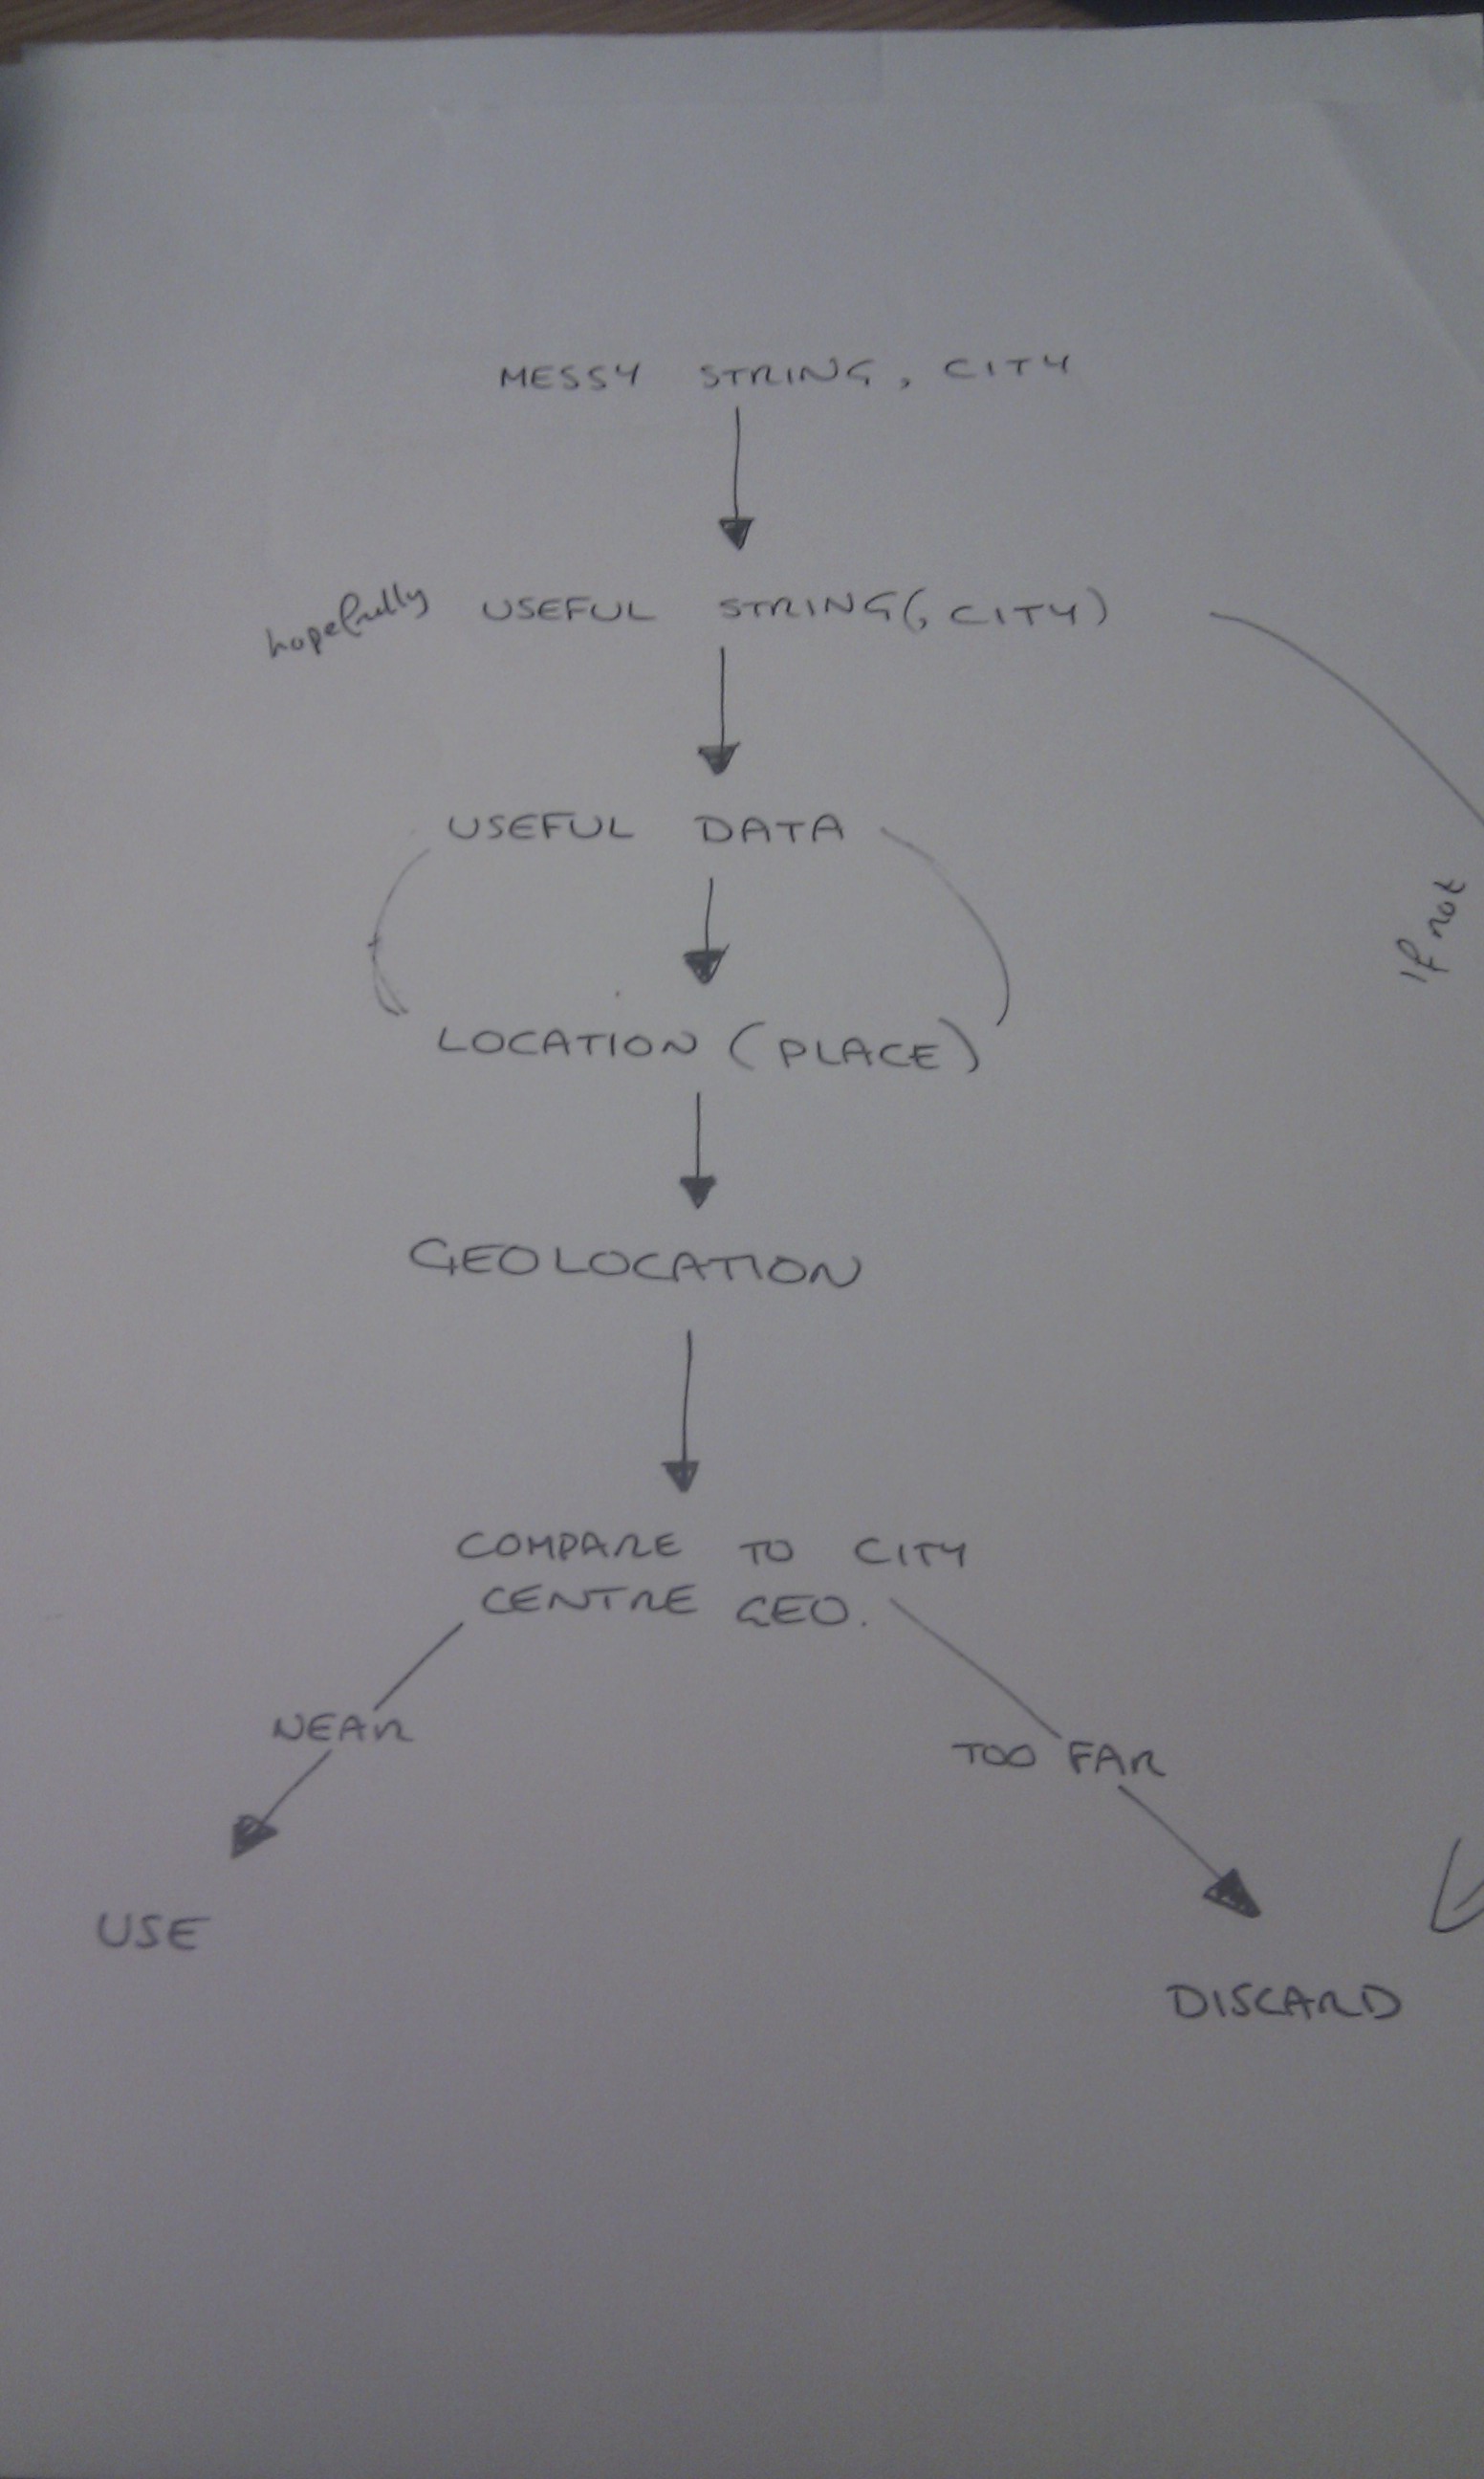 MESSY STRING, CITY
hopefully USEFUL STRING(, CITY)
USEFUL DATA
If not
LOCATION (PLACE)
GEOLOCATION
COMPARE TO CITY
CENTRE GEO.
NEAR
TOO FAR
USE
DISCARD